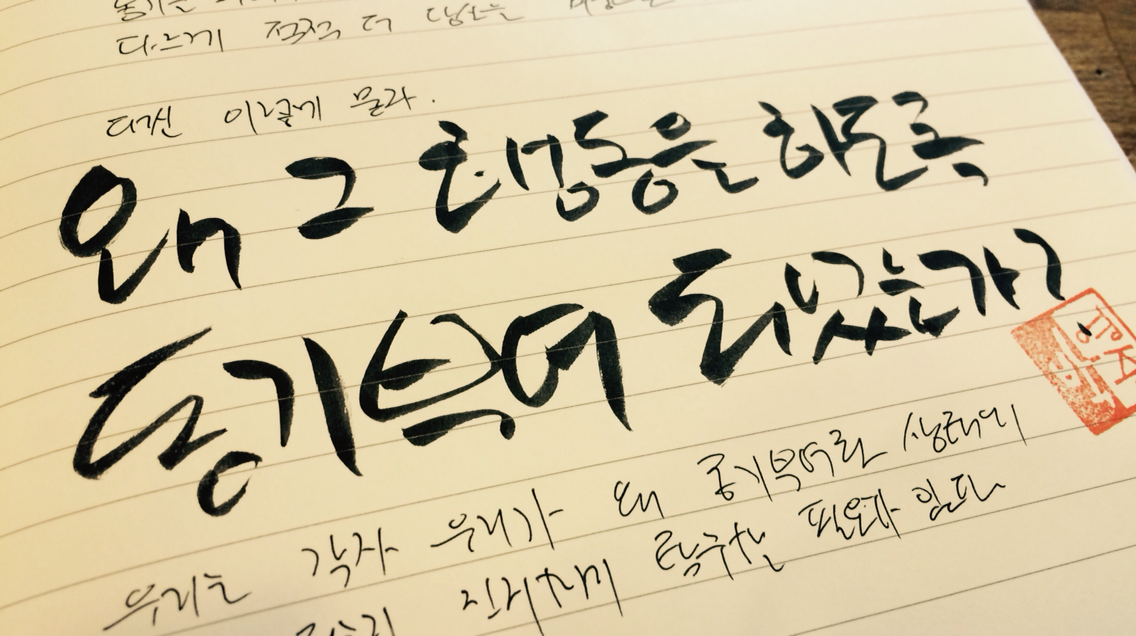 다르게 직접 더
대신 이렇게 물라.
왜 그 행동을 하도록
동기부여 되었는가?
우리는 각자 우리가 왜 동기부여된 상태인지
진지하게 탐구할 필요가 있다